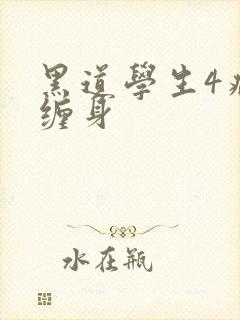 黑道學生4
缠身
水在瓶